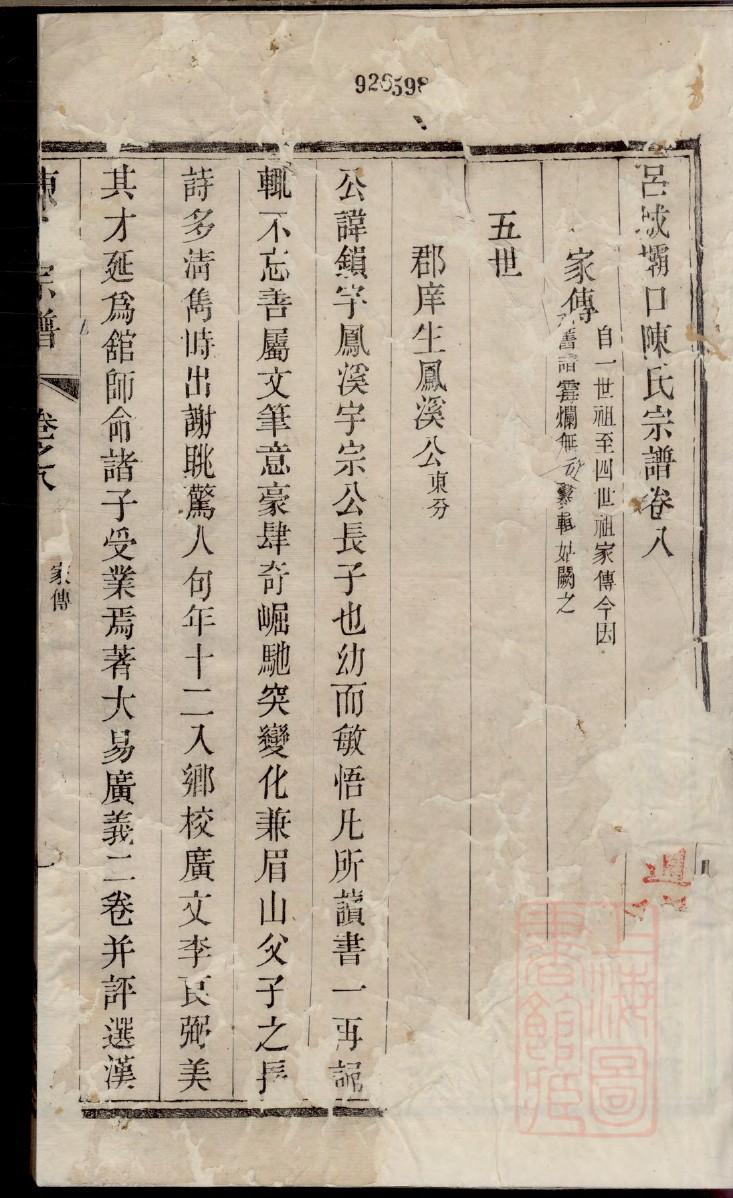 926598
呂城壩口陳氏宗譜卷八
家傳
自一世祖至四世祖家傳今因
舊譜霉爛無
輯姑闕之
五世
郡庠生鳳溪公東分
公諱鎖字鳳溪字宗公長子也幼而敏悟凡所讀書一再記
輒不忘善屬文筆意豪肆奇崛馳突變化兼眉山父子之長
詩多清雋時出謝眺驚人句年十二入鄉校廣文李良弼美
其才延為舘師命諸子受業焉著大易廣義二卷并評選漢
陳 宗譜
卷之八
家傳
一
上海圖書館藏